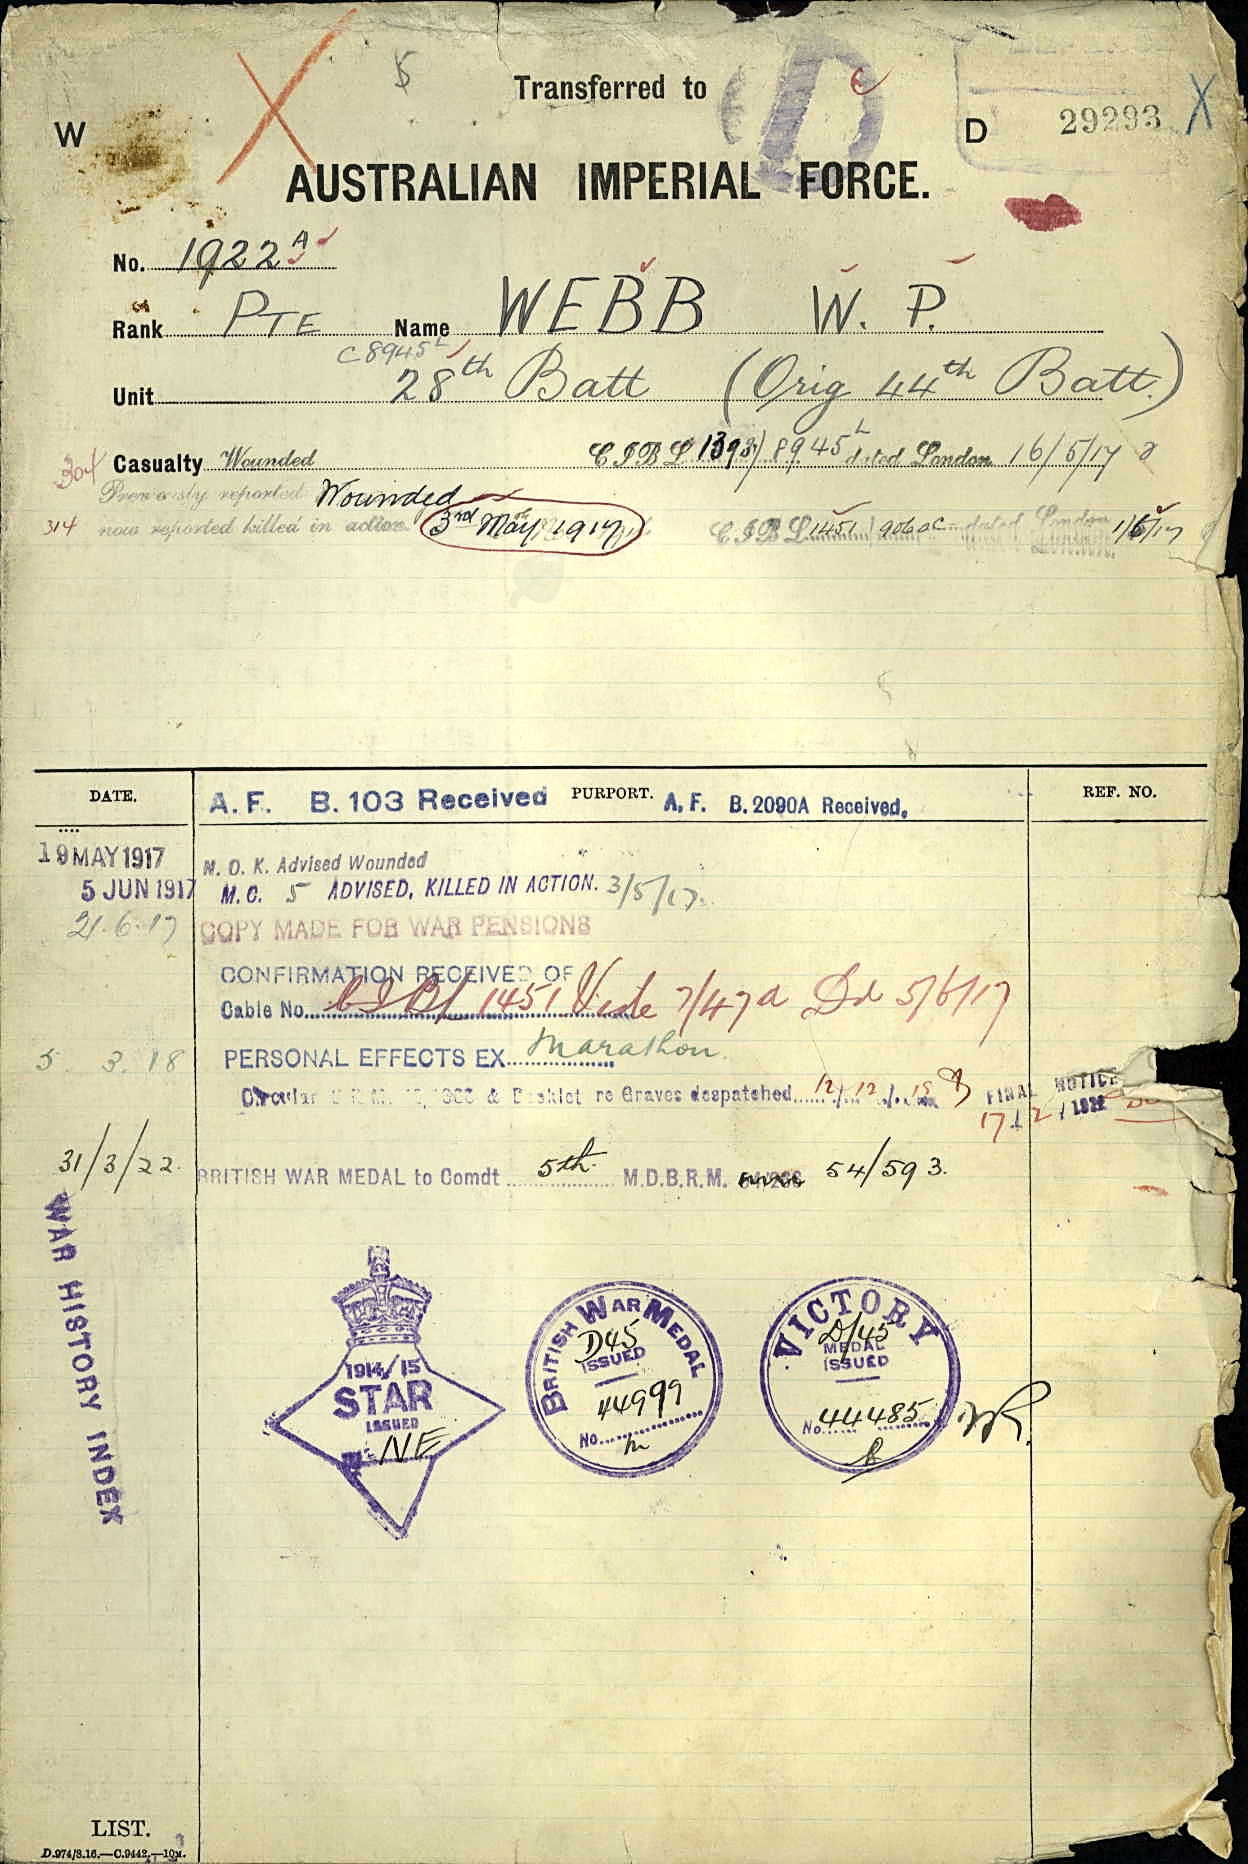 Transferred to
W
D 29293
AUSTRALIAN IMPERIAL FORCE.
No. 1922 A
Rank PTE Name WEBB W. P.
C 8945 L
Unit 28th Batt (Orig 44th Batt.)
304 Casualty Wounded C I B L 1393/8945 L dated London 16/5/17
Previously reported Wounded
314 now reported killed in action 3rd May 1917 C I B L 1451/906 dated London 1/6/17
DATE. PURPORT. REF. NO.
A. F. B. 103 Received A. F. B. 2090A Received.
19 MAY 1917 N. O. K. Advised Wounded
5 JUN 1917 M. C. 5 ADVISED, KILLED IN ACTION. 3/5/17.
21.6.17 COPY MADE FOR WAR PENSIONS
CONFIRMATION RECEIVED OF
Cable No. 1451 Vide 7/47a Dd 5/6/17
5. 3. 18 PERSONAL EFFECTS EX Marathon.
Circular & Booklet re Graves despatched 12/12/
FINAL NOTICE
17/2/1922
31/3/22. BRITISH WAR MEDAL to Comdt 5th. M.D.B.R.M. 54/593.
WAR HISTORY INDEX
1914/15
STAR
ISSUED
NE
BRITISH WAR MEDAL
D45
ISSUED
44999
No.
VICTORY
D/45
MEDAL
ISSUED
No. 44485
LIST.
D.974/3.16.—C.9442.—10M.